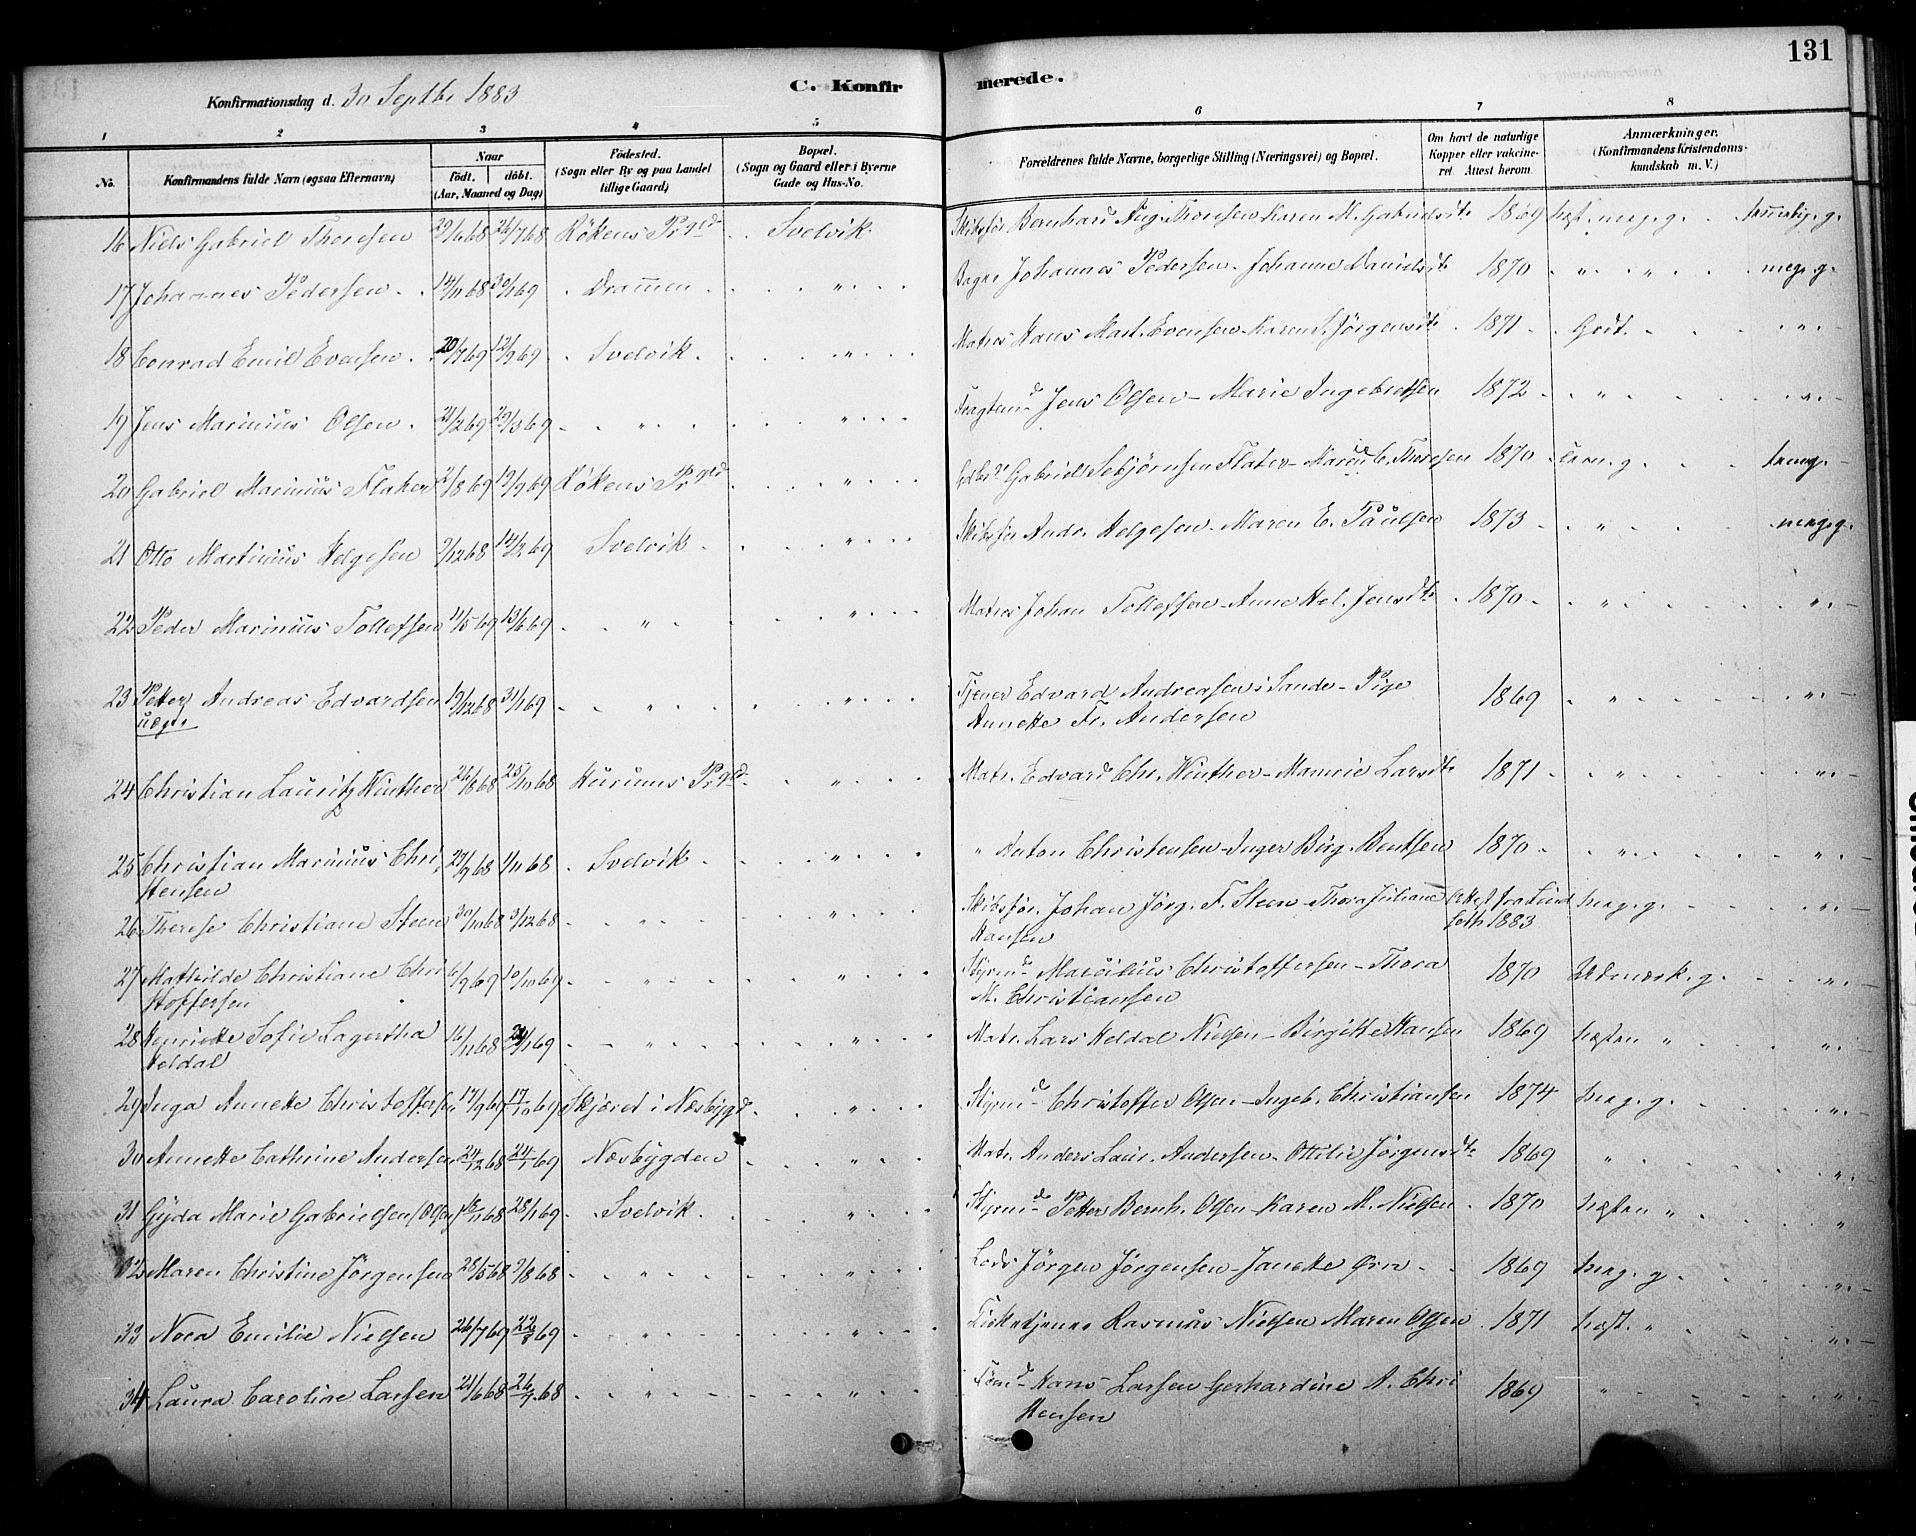 131
Konfirmationsdag d. 30 Septbr 1883
C. Konfirmerede.
1 2 3 4 5 6 7 8
No.
Konfirmandens fulde Navn (ogsaa Efternavn)
Naar
født. døbt.
(Aar, Maaned og Dag)
Fødested.
(Sogn eller By og paa Landet
tillige Gaard)
Bopæl.
(Sogn og Gaard eller i Byerne
Gade og Hus-No.
Forældrenes fulde Navne, borgerlige Stilling (Næringsvei) og Bopæl.
Om havt de naturlige
Kopper eller vakcine-
ret. Attest herom.
Anmærkninger.
(Konfirmandens Kristendoms-
kundskab m. V.)
16 Niels Gabriel Thoresen 29/6 68 26/7 68 Rökens Prgld Svelvik Skibsför Bernhard Aug. Thoresen - Karen M. Gabrielsdtr 1869 næst. meg. g.
17 Johannes Pedersen 14/11 68 30/1 69 Drammen " Bager Johannes Pedersen - Johanne Danielsdtr 1870 " " meg. g.
18 Conrad Emil Evensen 20/7 69 12/9 69 Svelvik " Matros Hans Mart. Evensen - Karen S. Jörgensdtr 1871 Godt "
19 Jens Marinius Olsen 21/2 69 29/3 69 " " Jens Olsen - Marie Ingebretsen 1872 " "
20 Gabriel Marinius Flater 2/8 69 19/9 69 Rökens Prgld " Gabriel Sebjörnsen Flater - Maren C. Thoresen 1870
21 Otto Martinius Helgesen 9/12 68 14/2 69 Svelvik " Skibsför Andr. Helgesen - Maren E. Paulsen 1873 " meg. g.
22 Peder Marinius Tollefsen 11/5 69 13/6 69 " " Matros Johan Tollefsen - Anne Hel. Jensdtr 1870 " "
23 Petter Andreas Edvardsen 19/12 68 31/1 69 " " Tjener Edvard Andreasen i Sande - Pige 1869 " "
uægte Annette Fr. Andersen
24 Christian Lauritz Winther 26/8 68 25/10 68 Hurums Prgld " Matr. Edvard Chr. Winther - Mamrie Larsdtr 1871 " "
25 Christian Marinius Chri- 27/9 68 1/11 68 Svelvik " " Anton Christensen - Inger Birg. Bentsen 1870 " "
stensen
26 Therese Christiane Steen 30/10 68 3/12 68 " " Skibsför. Johan Jörg. F. Steen - Thora Juliane Attest fra Lund meg. g. "
Hansen 1883
27 Mathilde Christiane Chri- 6/9 69 10/10 69 " " Styrmd Marinius Christoffersen - Thora 1870 Udmærk. g. "
stoffersen M. Christiansen
28 Henriette Sofie Lagertha 16/11 68 24/1 69 " " Matr. Lars Heldal Nielsen - Birgitte Hansen 1869 næsten " "
Heldal
29 Inga Annette Christoffersen 17/9 69 17/10 69 Skjæret i Næsbygd " Styrmd Christoffer Olsen - Ingeb. Christiansen 1874 meg. g. "
30 Annette Cathrine Andersen 24/12 68 24/1 69 Næsbygden " Matr. Anders Laur. Andersen - Ottilie Jörgensdtr 1869 " "
31 Gyda Marie Gabrielsen (Olsen) 16/11 68 28/1 69 Svelvik " Styrmd Petter Bernh. Olsen - Karen M. Nielsen 1870 næsten " "
32 Maren Christine Jörgensen 28/5 68 9/8 68 " " Lods Jörgen Jörgensen - Janette Örn 1869 meg. g. "
33 Nora Emilie Nielsen 26/7 69 22/8 69 " " Rasmus Nielsen Maren Olsen 1871 næst. " "
34 Laura Caroline Larsen 21/6 68 26/7 68 " " Tömd Hans Larsen - Gerhardine A. Chri- 1869 " "
stensen